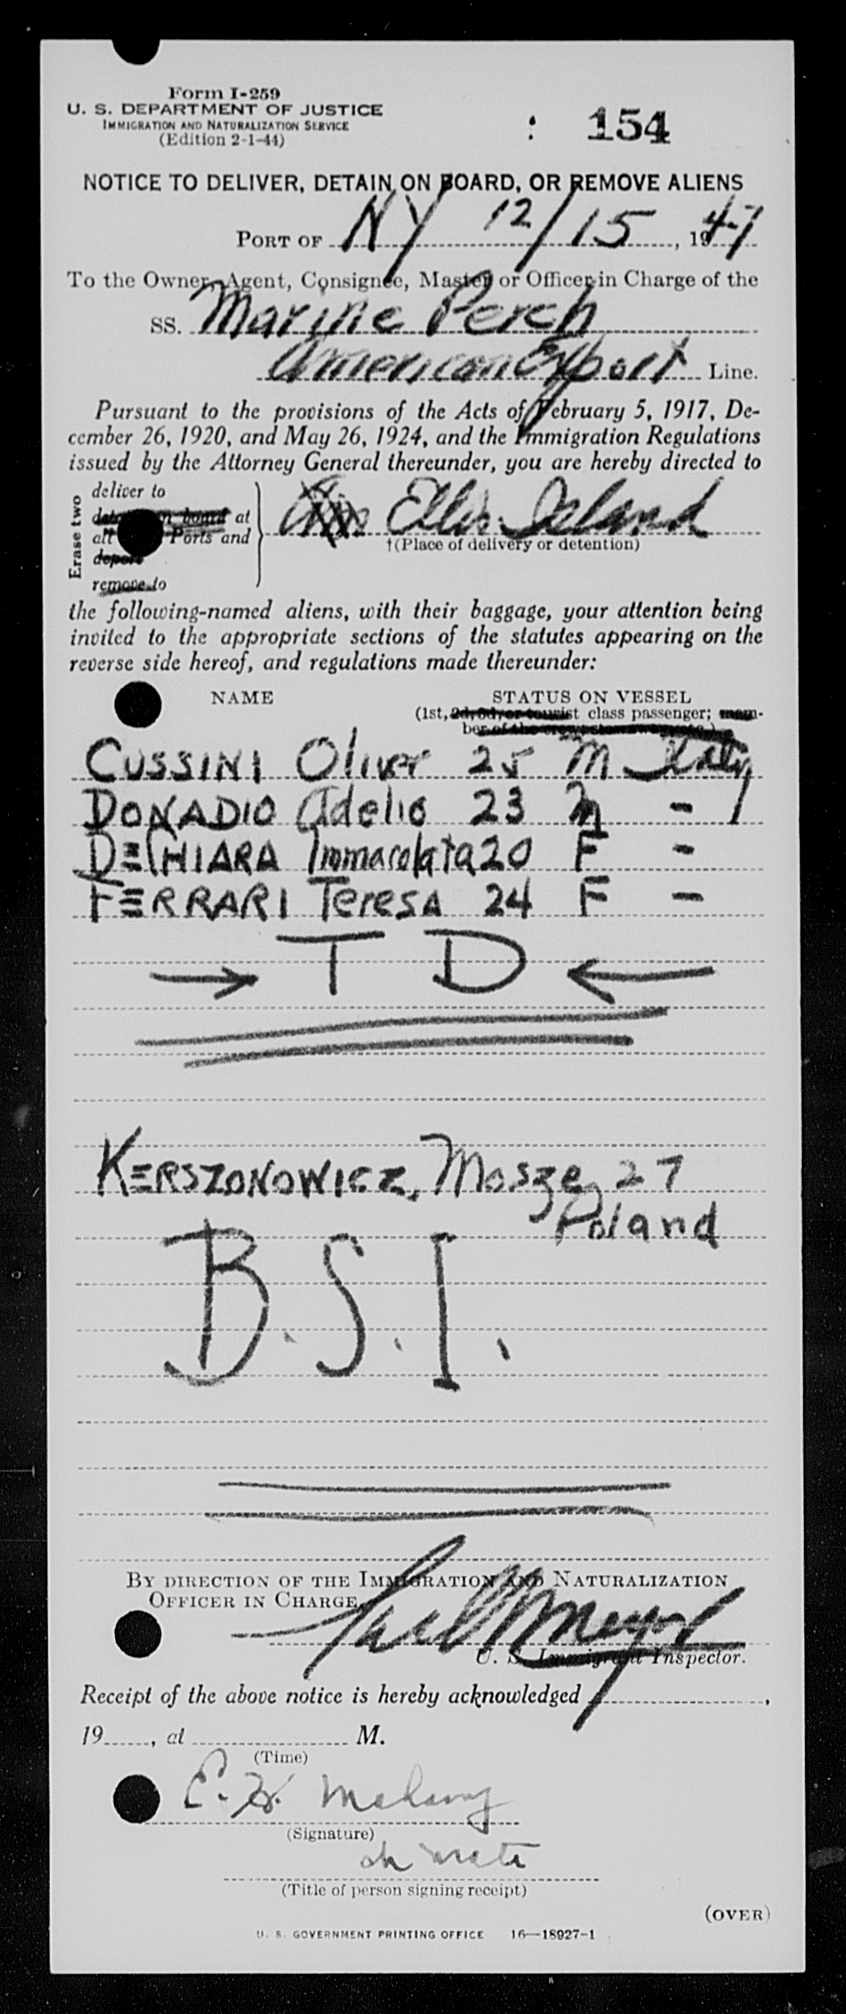 Form I-259
U. S. DEPARTMENT OF JUSTICE
IMMIGRATION AND NATURALIZATION SERVICE
(Edition 2-1-44)
: 154
NOTICE TO DELIVER, DETAIN ON BOARD, OR REMOVE ALIENS
PORT OF NY 12/15, 1947
To the Owner, Agent, Consignee, Master or Officer in Charge of the
SS. Marine Perch
American Export Line.
Pursuant to the provisions of the Acts of February 5, 1917, De-
cember 26, 1920, and May 26, 1924, and the Immigration Regulations
issued by the Attorney General thereunder, you are hereby directed to
Erase two
deliver to
detain on board at
all Ports and
deport
remove to
Ellis Island
†(Place of delivery or detention)
the following-named aliens, with their baggage, your attention being
invited to the appropriate sections of the statutes appearing on the
reverse side hereof, and regulations made thereunder:
NAME STATUS ON VESSEL
(1st, 2d, 3d, or tourist class passenger; mem-
ber of the crew, stowaway, etc.)
CUSSINI Oliver 25 M Italy
DONADIO Adelio 23 M - /
DECHIARA Immacolata 20 F -
FERRARI Teresa 24 F -
→ T D ←
KERSZONOWICZ, Mosze 27
Poland
B.S.I.
BY DIRECTION OF THE IMMIGRATION AND NATURALIZATION
OFFICER IN CHARGE,
U. S. Immigrant Inspector.
Receipt of the above notice is hereby acknowledged ,
19 , at M.
(Time)
(Signature)
(Title of person signing receipt)
(OVER)
U. S. GOVERNMENT PRINTING OFFICE 16—18927-1